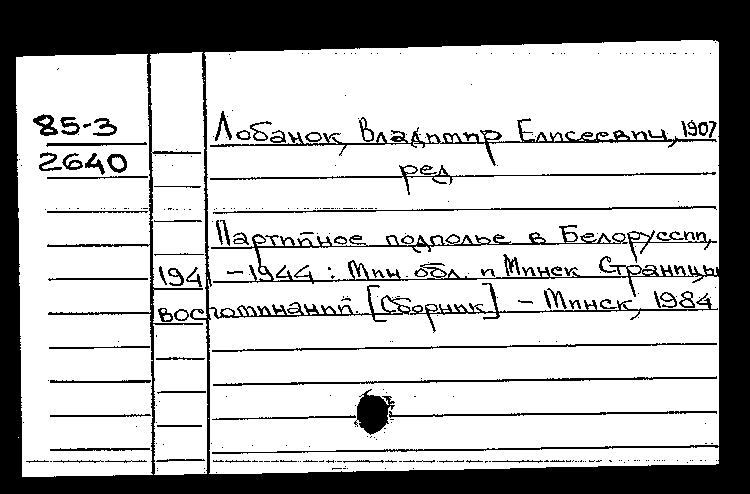 85-3
2640
Лобанок, Владимир Елисеевич, 1907
ред
Партийное подполье в Белоруссии,
1941 - 1944 : Мин. обл. и Минск Страницы
воспоминаний [Сборник] - Минск, 1984